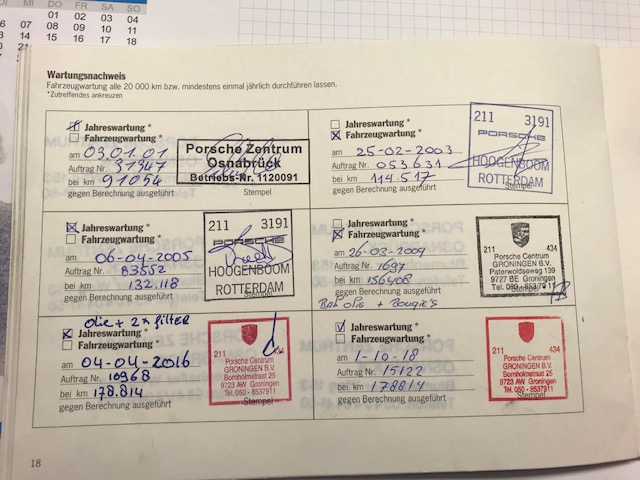 DI MI DO FR SA SO
01 02 03 04
06 07 08 09 10 11
13 14 15 16 17 18
20
Wartungsnachweis
Fahrzeugwartung alle 20 000 km bzw. mindestens einmal jährlich durchführen lassen.
*Zutreffendes ankreuzen
Jahreswartung *
Fahrzeugwartung *
am 03.01.01
Auftrag Nr. 31947
bei km 91054
gegen Berechnung ausgeführt
Porsche Zentrum
Osnabrück
Betriebs-Nr. 1120091
Stempel
Jahreswartung *
Fahrzeugwartung *
am 25-02-2003
Auftrag Nr. 053631
bei km 114.517
gegen Berechnung ausgeführt
211 3191
PORSCHE
HOOGENBOOM
ROTTERDAM
Stempel
Jahreswartung *
Fahrzeugwartung *
am 06-04-2005
Auftrag Nr. 83552
bei km 132.118
gegen Berechnung ausgeführt
211 3191
PORSCHE
HOOGENBOOM
ROTTERDAM
Stempel
Jahreswartung *
Fahrzeugwartung *
am 26-03-2009
Auftrag Nr. 1697
bei km 156408
gegen Berechnung ausgeführt
Bak olie + Bougie's
211 434
Porsche Centrum
GRONINGEN B.V.
Paterwoldseweg 139
9727 BE Groningen
Tel. 050 - 8537911
Stempel
olie + 2x filter
Jahreswartung *
Fahrzeugwartung *
am 04-04-2016
Auftrag Nr. 10968
bei km 178.814
gegen Berechnung ausgeführt
211 434
Porsche Centrum
GRONINGEN B.V.
Bornholmstraat 25
9723 AW Groningen
Tel. 050 - 8537911
Stempel
Jahreswartung *
Fahrzeugwartung *
am 1-10-18
Auftrag Nr. 15122
bei km 178814
gegen Berechnung ausgeführt
211 434
Porsche Centrum
GRONINGEN B.V.
Bornholmstraat 25
9723 AW Groningen
Tel. 050 - 8537911
Stempel
18